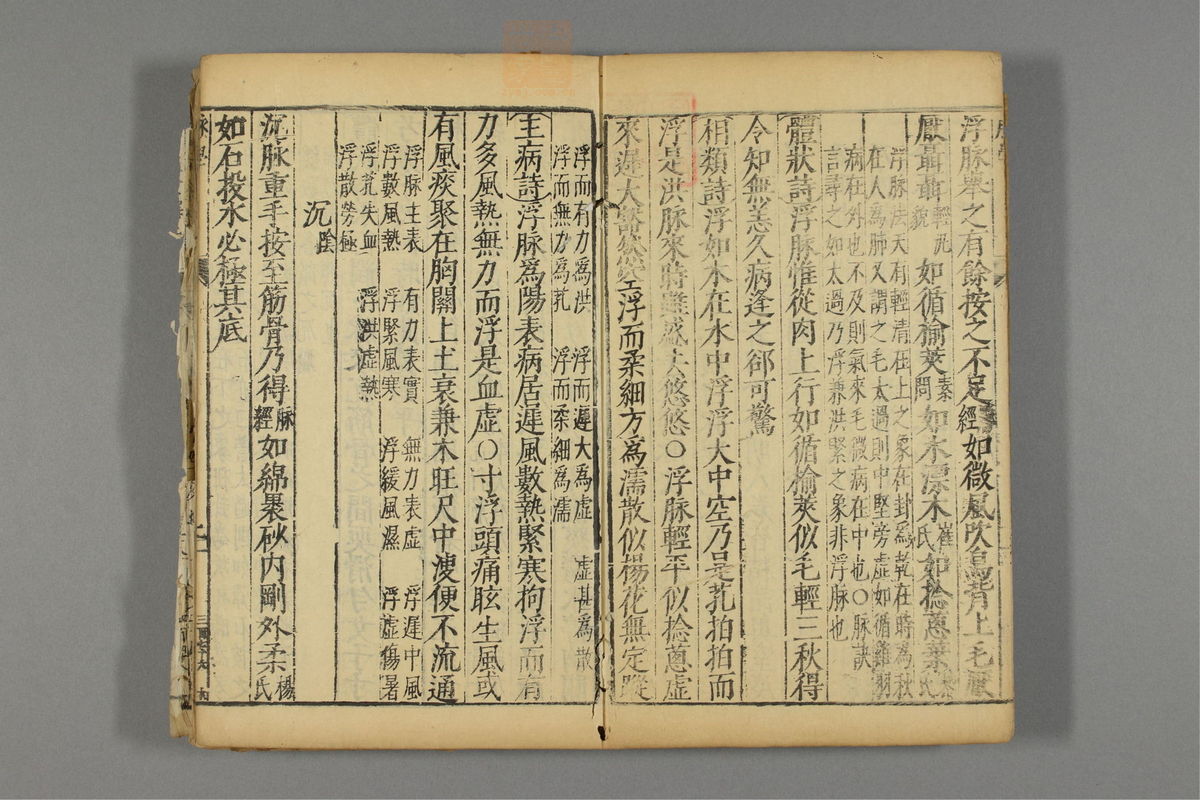 浮脉舉之有餘按之不足經如微風吹鳥背上毛厭
厭聶聶輕汎貌如循榆莢素問如水漂木崔氏如捻蔥葉
浮脉法天有輕清在上之象在卦爲乾在時爲秋
在人爲肺又謂之毛太過則中堅旁虛如循雞羽
病在外也不及則氣來毛微病在中也〇脉訣
言尋之如太過乃浮兼洪緊之象非浮脉也
體狀詩浮脉惟從肉上行如循榆莢似毛輕三秋得
令知無恙久病逢之郤可驚
相類詩浮如木在水中浮浮大中空乃是芤拍拍而
浮是洪脉來時雖盛去悠悠〇浮脉輕平似捻蔥虛
來遲大豁然空浮而柔細方爲濡散似楊花無定蹤
浮而有力爲洪 浮而遲大爲虛 虛甚爲散
浮而無力爲芤 浮而柔細爲濡
主病詩浮脉爲陽表病居遲風數熱緊寒拘浮而有
力多風熱無力而浮是血虛〇寸浮頭痛眩生風或
有風痰聚在胸關上土衰兼木旺尺中溲便不流通
浮脉主表 有力表實 無力表虛 浮遲中風
浮數風熱 浮緊風寒 浮緩風濕 浮虛傷暑
浮芤失血 浮洪虛熱
浮散勞極
沉陰
沉脉重手按至筋骨乃得脉經如綿裹砂內剛外柔楊氏
如石投水必極其底